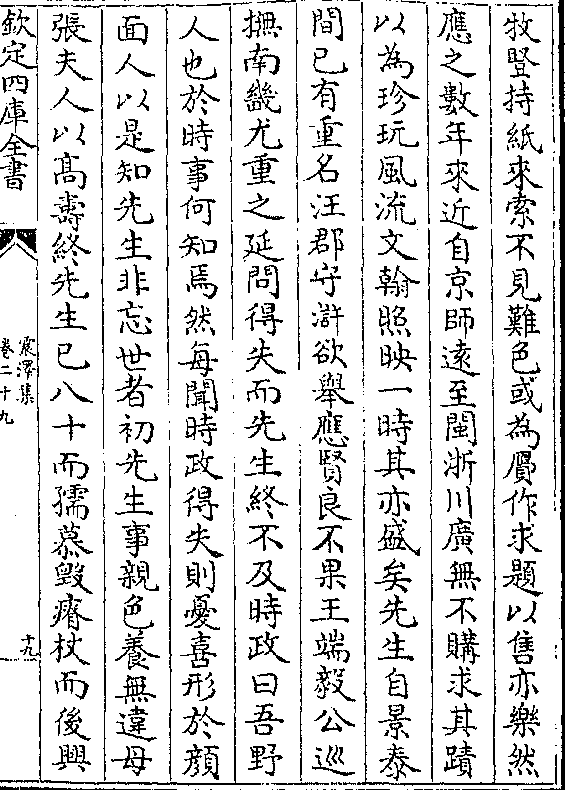 牧豎持紙來索不見難色或為贋作求題以售亦樂然
應之數年來近自京師遠至閩浙川廣無不購求其蹟
以為珍玩風流文翰照映一時其亦盛矣先生自景泰
間已有重名汪郡守滸欲舉應賢良不果王端毅公巡
撫南畿尤重之延問得失而先生終不及時政曰吾野
人也於時事何知焉然每聞時政得失則憂喜形於顔
面人以是知先生非忘世者初先生事親色養無違母
張夫人以髙壽終先生已八十而孺慕毁瘠杖而後興
欽定四庫全書
震澤集
卷二十九
十九